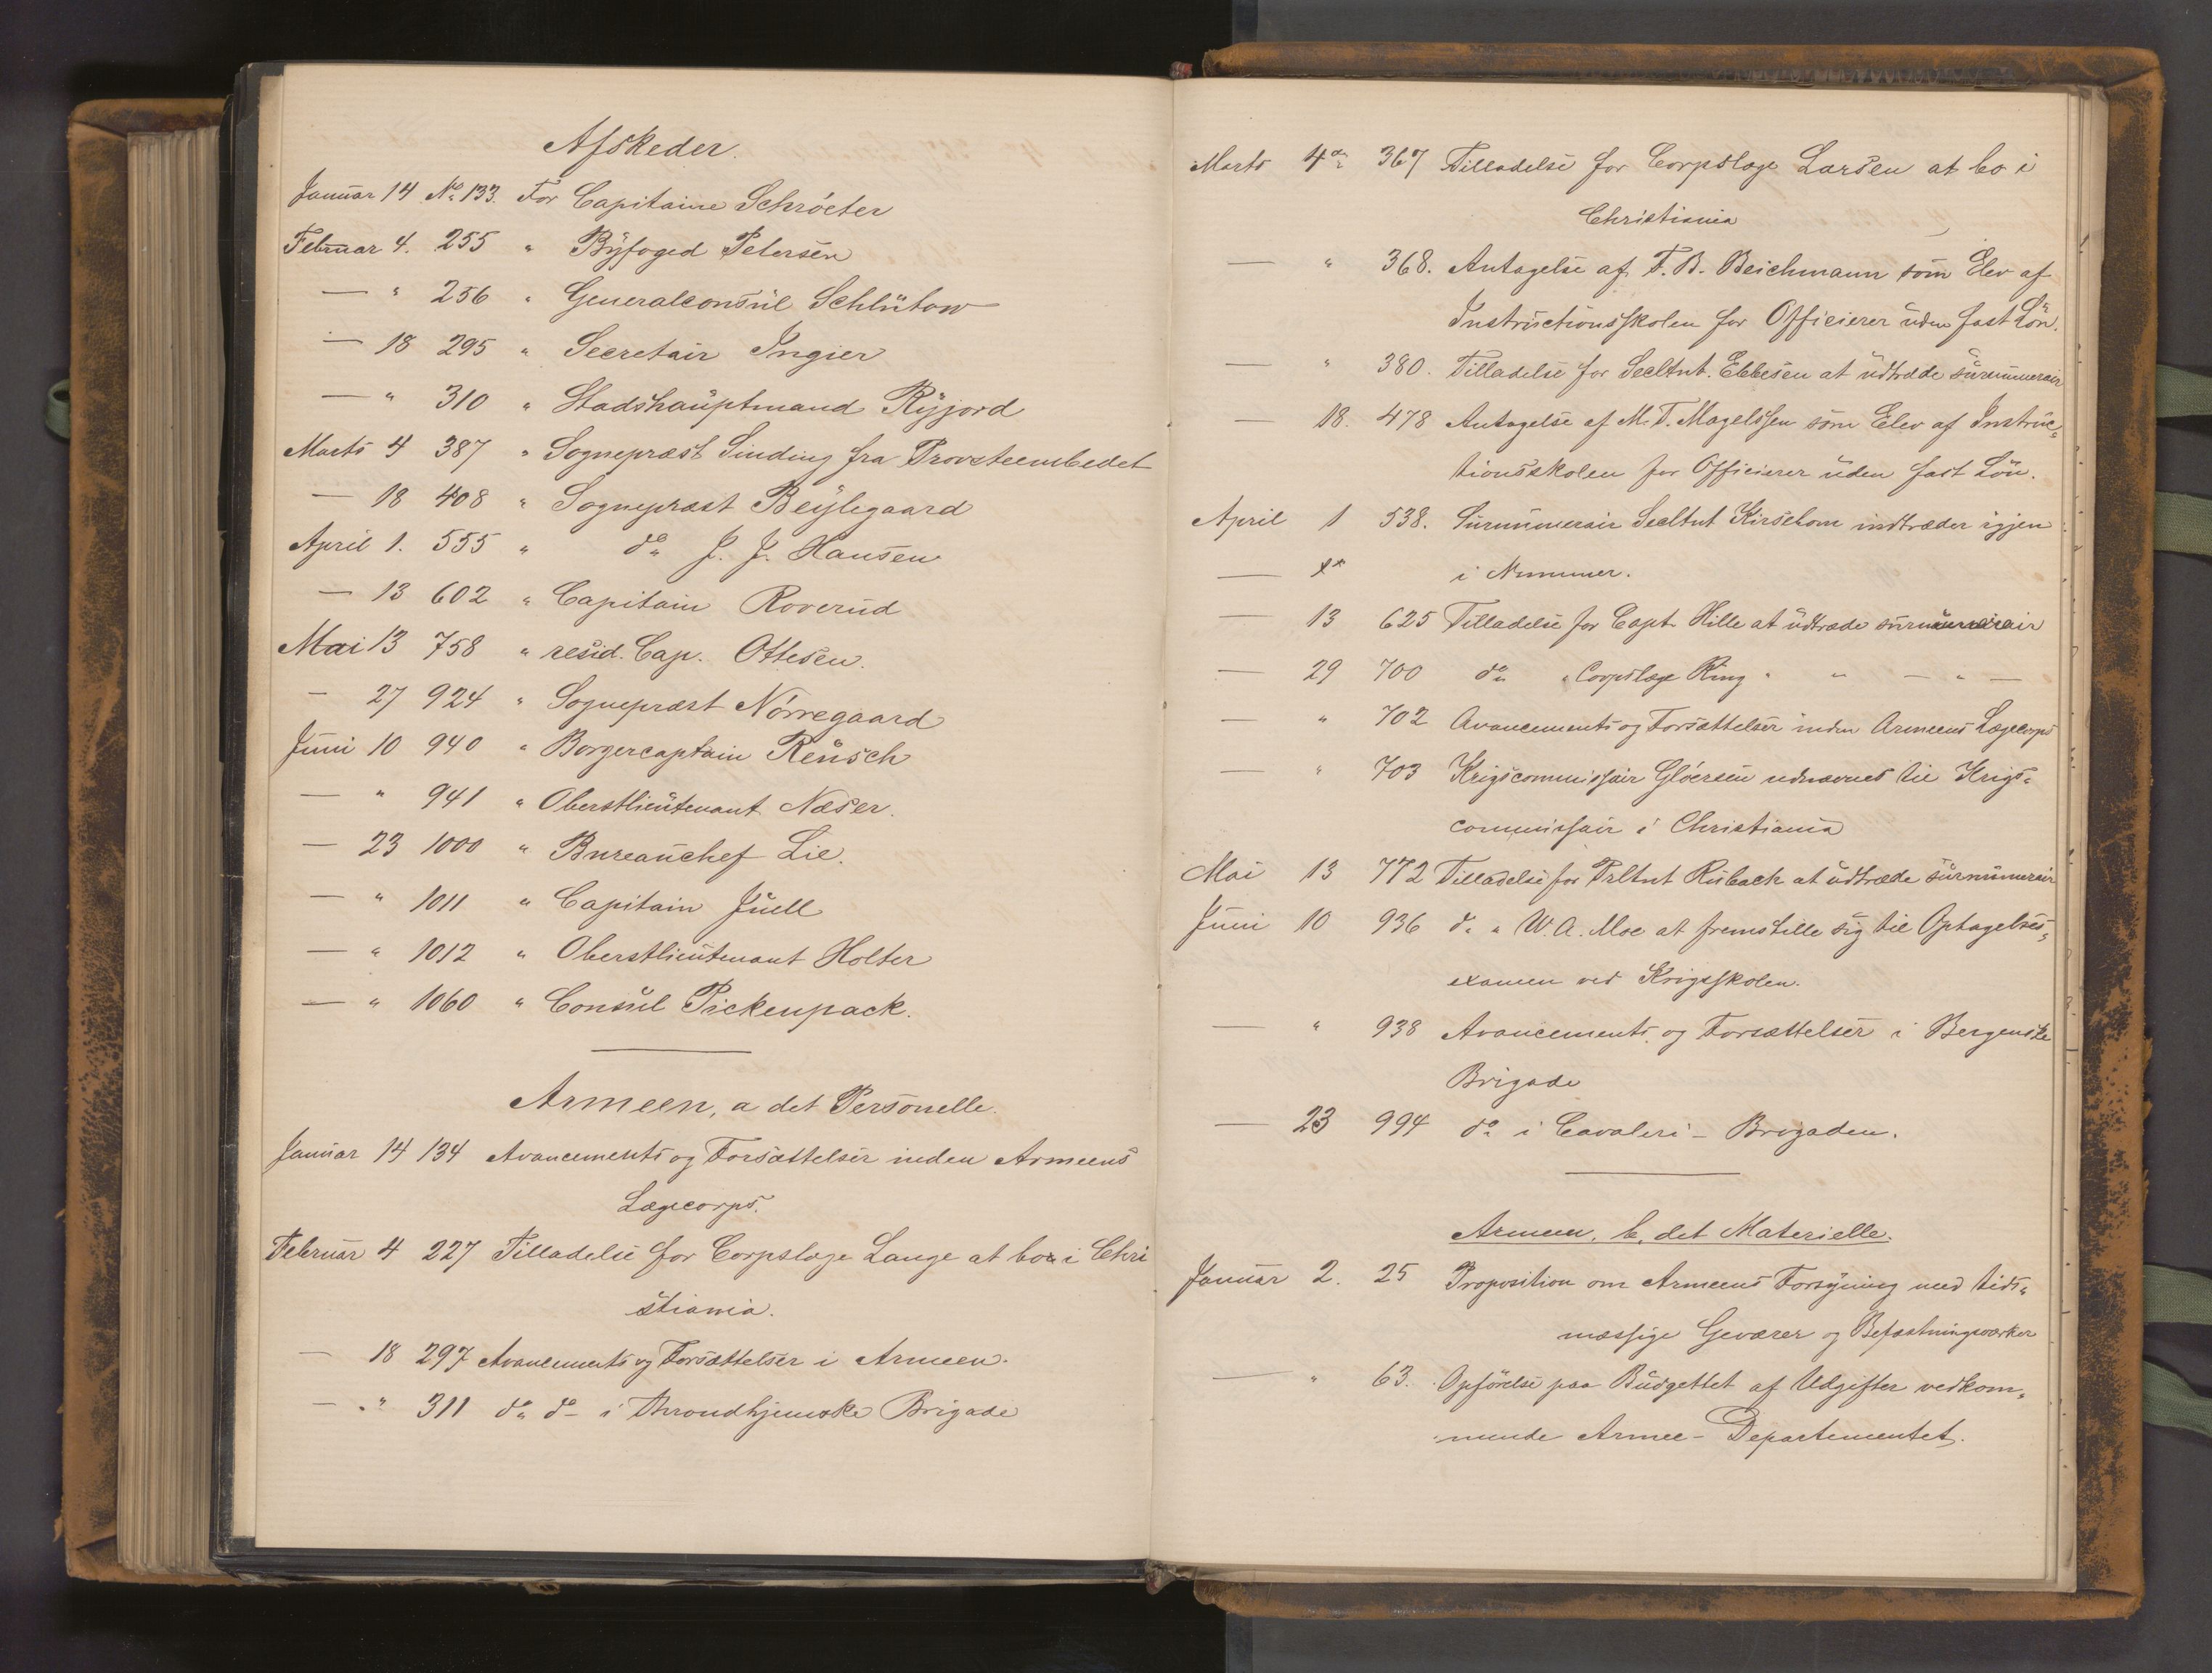 Afskeder.
Januar 14 No. 133. For Capitaine Schröeter
Februar 4. 255 " Byfoged Petersen
— " 256 " Generalconsul Schlütow
— 18 295 " Secretair Ingier
— " 310 " Stadshauptmand Ryjord
Marts 4 387 " Sognepræst Sinding fra Provsteembedet
— 18 408 " Sognepræst Beylegaard
April 1. 555 " do J. J. Hansen
— 13 602 " Capitain Roverud
Mai 13 758 " resid. Cap. Ottesen.
— 27 924 " Sognepræst Nörregaard
Juni 10 940 " Borgercaptain Reusch
— " 941 " Oberstlieutenant Næser.
— 23 1000 " Bureauchef Lie.
— " 1011 " Capitain Juell
— " 1012 " Oberstlieutenant Holter
— " 1060 " Consul Pickenpack.
Armeen, a det Personelle.
Januar 14 134 Avancements og Forsættelser inden Armeens
Lægecorps.
Februar 4 227 Tilladelse for Corpslæge Lange at bo i Chri
stiania.
— 18 297 Avancements og Forsættelser i Armeen.
— " 311 do do i Throndhjemske Brigade
Marts 4de 367 Tilladelse for Corpslæge Larsen at bo i
Christiania
— " 368. Antagelse af F. B. Beichmann som Elev af
Instructionsskolen for Officierer uden fast Lön.
— " 380. Tilladelse for Secltnt. Ebbesen at udtræde surnumerair
— 18. 478 Antagelse af M. T. Magelssen som Elev af Instruc„
tionsskolen for Officierer uden fast Lön.
April 1 538. Surnumerair Secltnt Kirsebom indtræder igjen
— i Nummer.
— 13 625 Tilladelse for Capt. Hille at udtræde surnumerair
— 29 700 do " Corpslæge Ring " " — " —
— " 702 Avancements og Forsættelser inden Armeens Lægecorps
— " 703 Krigscommissair Glöersen udnævnes til Krigs„
commissair i Christiania
Mai 13 772 Tilladelse for Prltnt Rubach at udtræde surnumerair
Juni 10 936 do " W. A. Moe at fremstille sig til Optagelses„
examen ved Krigsskolen.
— " 938 Avancements og Forsættelser i Bergenske
Brigade
— 23 994 do i Cavaleri - Brigaden.
Armeen, b, det Materielle.
Januar 2. 25 Proposition om Armeens Forsyning med tids„
mæssige Geværer og Befæstningsværker
— " 63. Opförelse paa Budgettet af Udgifter vedkom„
mende Armee-Departementet.